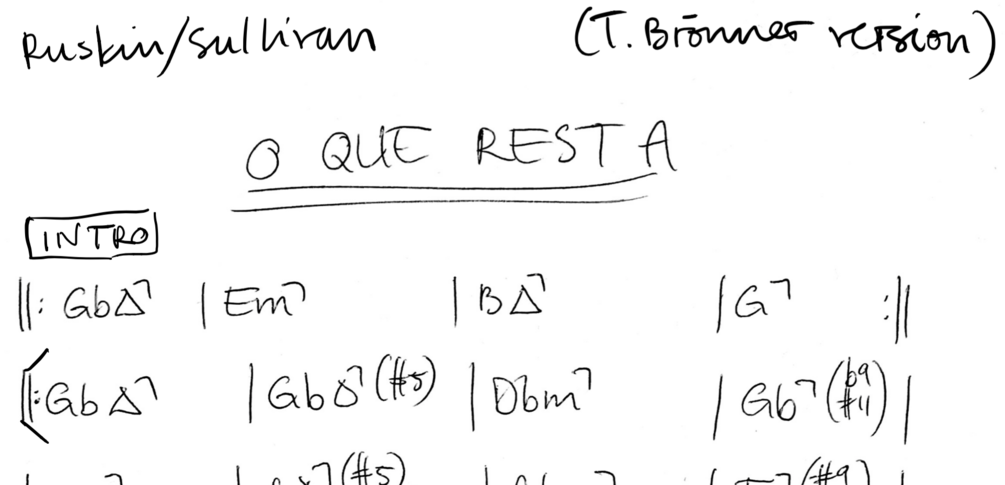 Ruskin/Sullivan (T. Brönner version)
O QUE RESTA
INTRO
||: GbΔ7 | Em7 | BΔ7 | G7 :||
||: GbΔ7 | GbΔ7(#5) | Dbm7 | Gb7(b9 #11) |